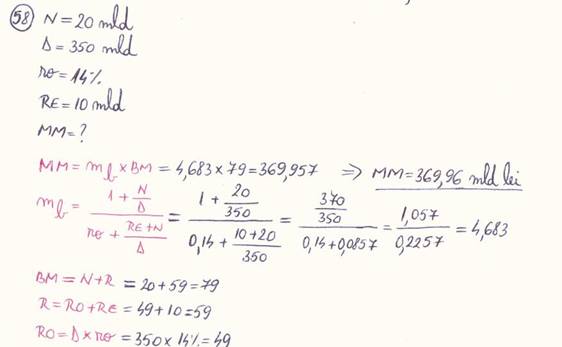 58 N = 20 mld
D = 350 mld
ro = 14%
RE = 10 mld
MM = ?
MM = mb × BM = 4,683 × 79 = 369,957 ⇒ MM = 369,96 mld lei
mb = (1 + N/D) / (ro + (RE+N)/D) = (1 + 20/350) / (0,14 + (10+20)/350) = (370/350) / (0,14 + 0,0857) = 1,057 / 0,2257 = 4,683
BM = N + R = 20 + 59 = 79
R = RO + RE = 49 + 10 = 59
RO = D × ro = 350 × 14% = 49